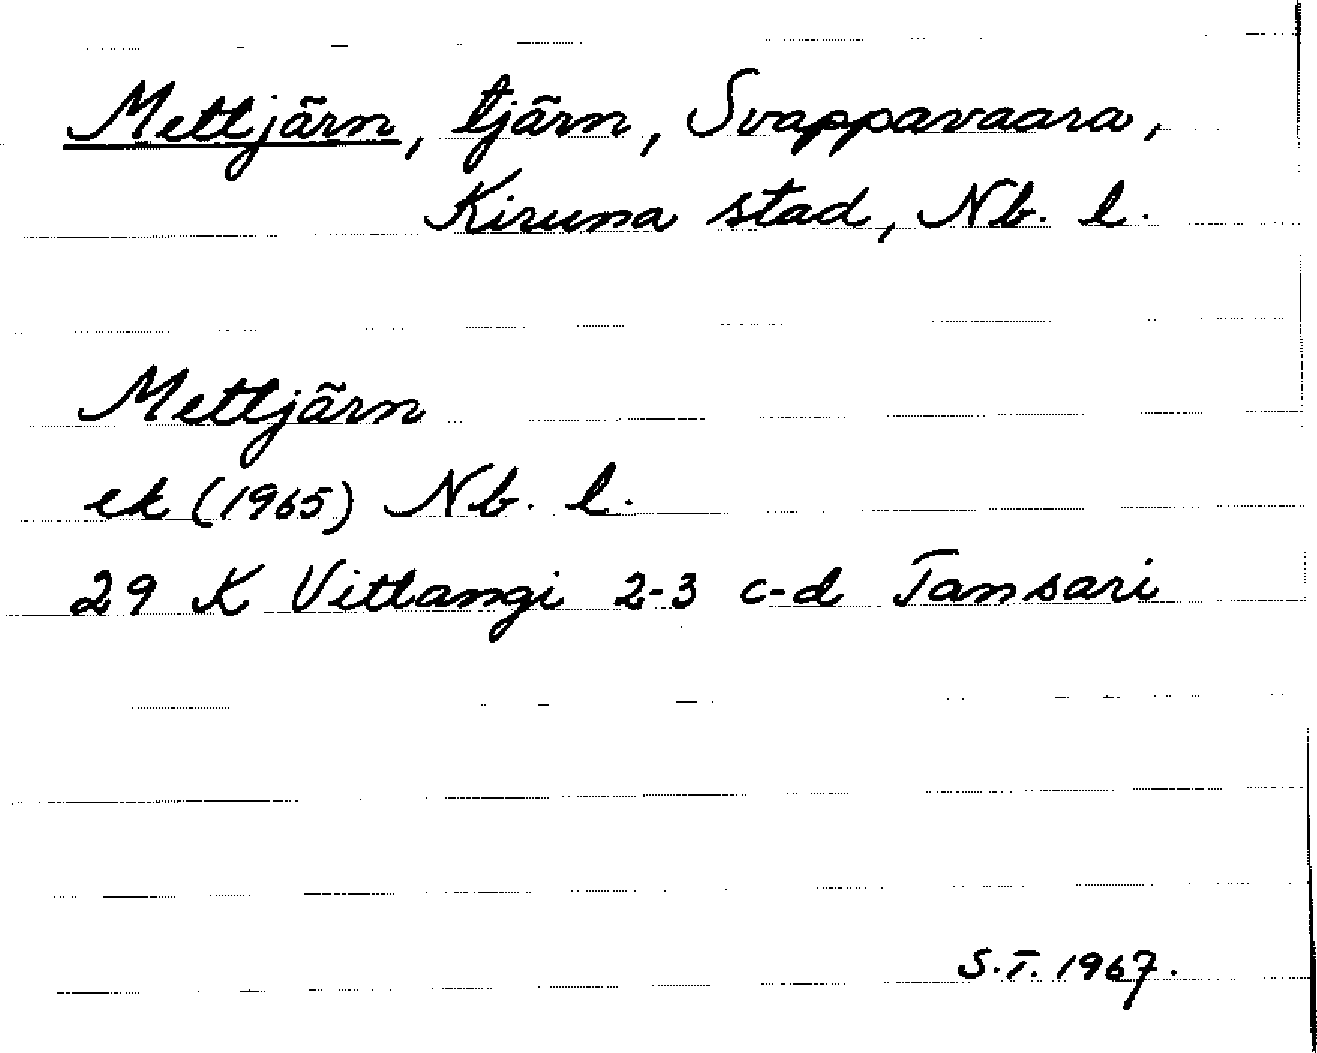 Mettjärn, tjärn, Svappavaara,
Kiruna stad, Nb. l.
Mettjärn
ek (1965) Nb. l.
29 K Vittangi 2-3 c-d Tansari
S.T. 1967.